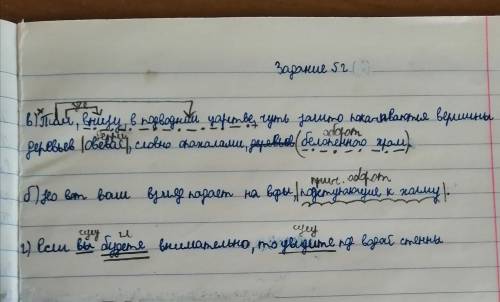 Задание 52
в) Там, внизу, в подводном царстве, чуть заметно покачиваются вершины
деревьев овевая, словно опахалами, деревьев (белопенного храм).
оборот
прич. оборот
б) Но вот ваш взгляд падает на вазы, подступающие к холму.
сущ и сущ
г) Если вы будете внимательно, то увидите где вдоль стены